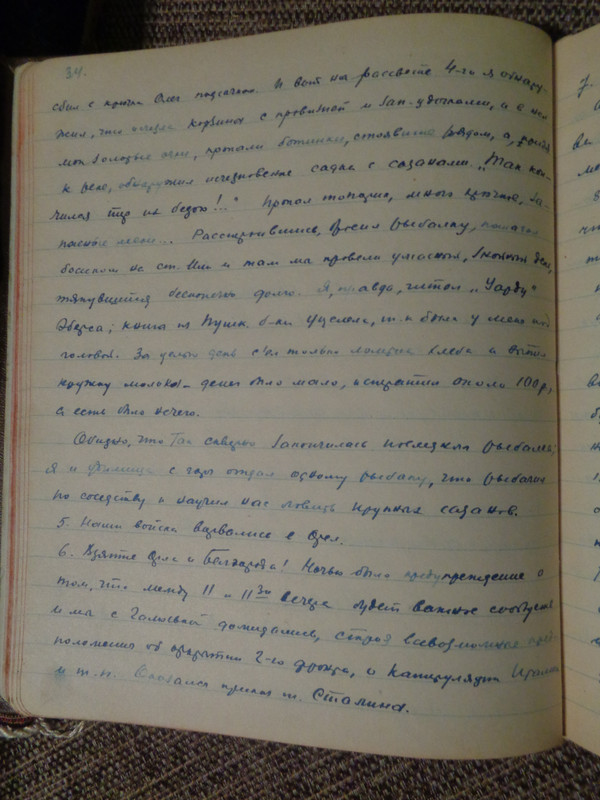 34.
сбил с крючка Олег подсачком. И вот на рассвете 4-го я обнару-
жил, что исчезла корзинка с провизией и зап. удочками, а с ней
мои болотные, пропали ботинки, стоявшие рядом, а, пойдя
к реке, обнаружил исчезновение садка с сазанами. „Так кон-
чился пир их бедою!.." Пропал топорик, много крючков, за-
пасные лески... Расстроившись, бросил рыбалку,
босиком на ст. Или и там мы провели ужасный, знойный день,
тянувшийся бесконечно долго. Я, правда, читал „Уарду"
Эберса; книга из Пушк. б-ки уцелела, т.к. была у меня под
головой. За целый день съел только ломтик хлеба и выпил
кружку молока - денег было мало, истратил около 100 р,
а есть было нечего.
Обидно, что так скверно закончилась последняя рыбалка;
Я и с горя отдал одному рыбаку, что рыбачил
по соседству и научил нас ловить крупных сазанов.
5. Наши войска ворвались в Орел.
6. Взятие Орла и Белгорода! Ночью было предупреждение о
том, что между 11 и 11 30 вечера будет важное сообщение
и мы с Галиевной дожидались, строя всевозможные пред-
положения об открытии 2-го фронта, о капитуляции Италии
и т.п. Оказался приказ т. Сталина.